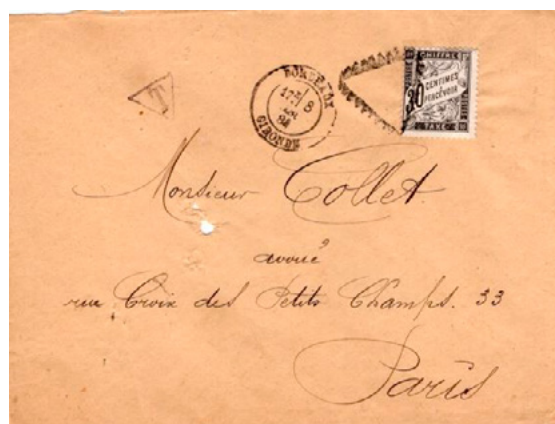 T
BORDEAUX
8
GIRONDE
CHIFFRE
20
CENTIMES
A
PERCEVOIR
TAXE
Monsieur Collet
avoué
rue Croix des Petits Champs. 33
Paris